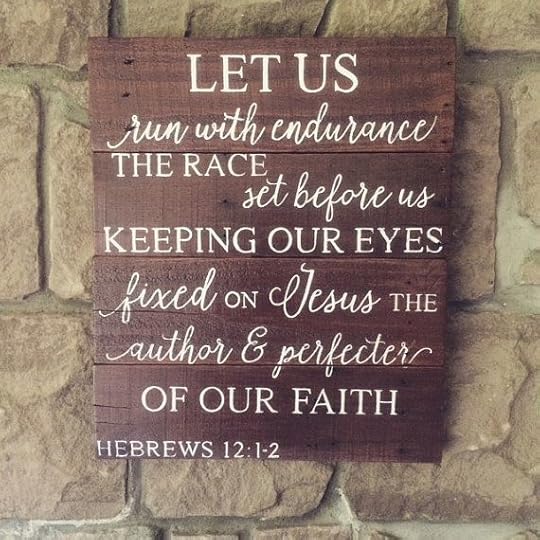 LET US
run with endurance
THE RACE
set before us
KEEPING OUR EYES
fixed ON Jesus THE
author & perfecter
OF OUR FAITH
HEBREWS 12:1-2